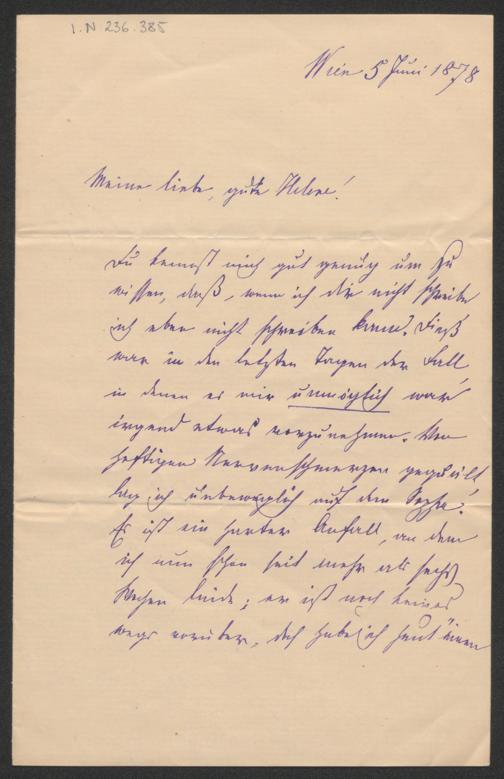 I.N 236.385
Wien 5 Juni 1878
Meine liebe, gute Helene!
Du kennst mich gut genug um zu
wissen, daß, wenn ich dir nicht schreibe
ich eben nicht schreiben kann. Dieß
war in den letzten Tagen der Fall
in denen es mir unmöglich war
irgend etwas vorzunehmen. Von
heftigen Nervenschmerzen gequält
lag ich unbeweglich auf dem Sopha.
Es ist ein harter Anfall, an dem
ich nun schon seit mehr als sechs
Wochen leide; er ist noch keines
wegs vorüber, doch habe ich heut einen